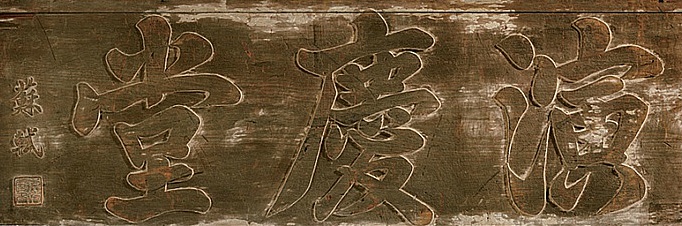 演慶堂
蘇軾